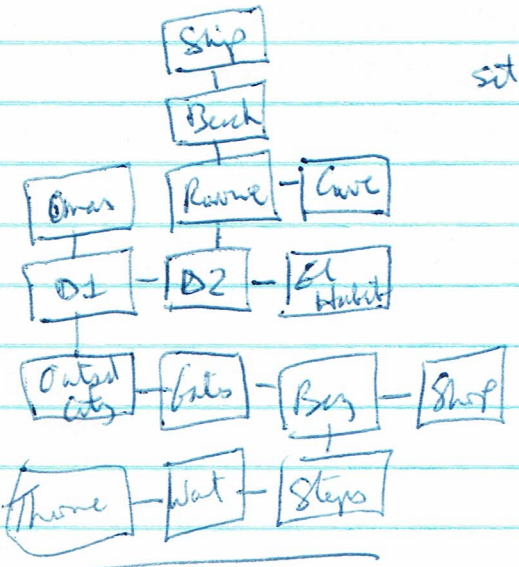 Ship
sit
Beach
Omar Ravine Cave
D1 D2 El
Habit
Outsid Gates Baz Shop
City
Throne Wait Steps